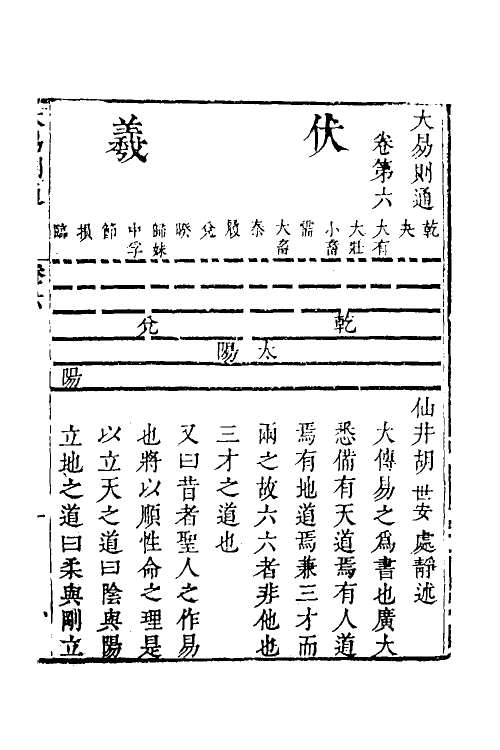 大易則通
卷第六
伏羲
乾
夬
大有
大壯
小畜
需
大畜
泰
履
兌
睽
歸妹
中孚
節
損
臨
乾 兌
太陽
陽
仙井胡世安處靜述
大傳易之為書也廣大
悉備有天道焉有人道
焉有地道焉兼三才而
兩之故六六者非他也
三才之道也
又曰昔者聖人之作易
也將以順性命之理是
以立天之道曰陰與陽
立地之道曰柔與剛立
大易則通
卷六
一